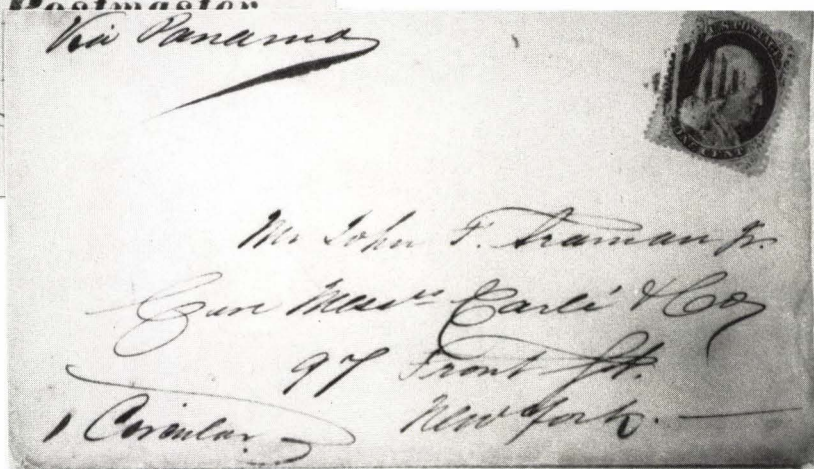 Postmaster
Via Panama
U.S. POSTAGE
ONE CENT
Mr John F. Seaman Jr.
Care Messrs Earlé & Co
97 Front St.
New York.
1 Circular